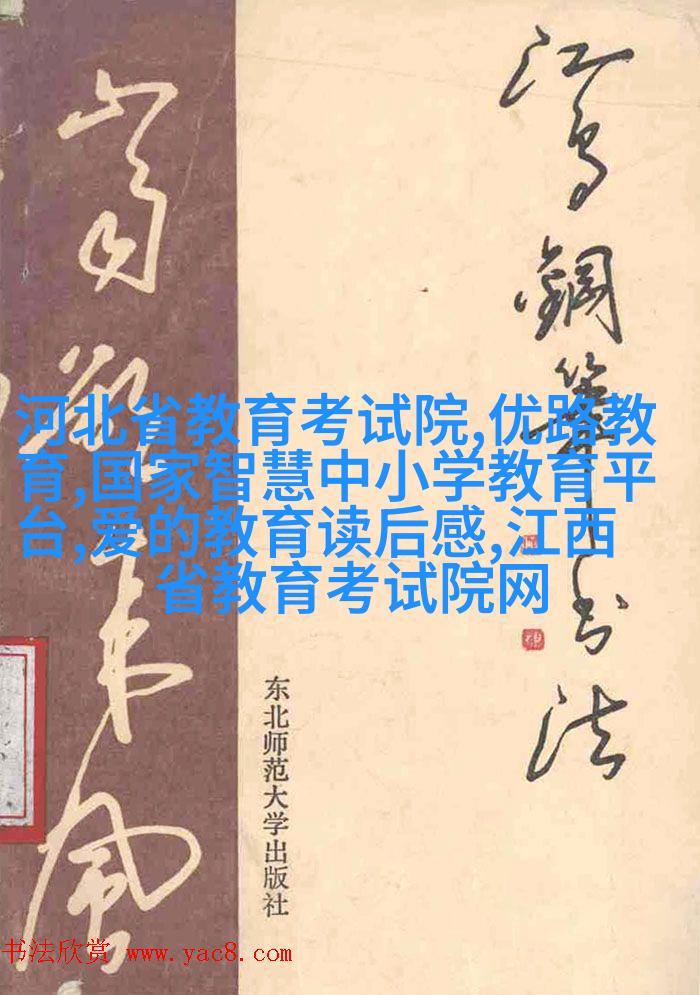 江鸟鋼筆书法
河北省教育考试院,优路教
育,国家智慧中小学教育平
台,爱的教育读后感,江西
省教育考试院网
东北师范大学出版社
书法欣赏 www.yac8.com